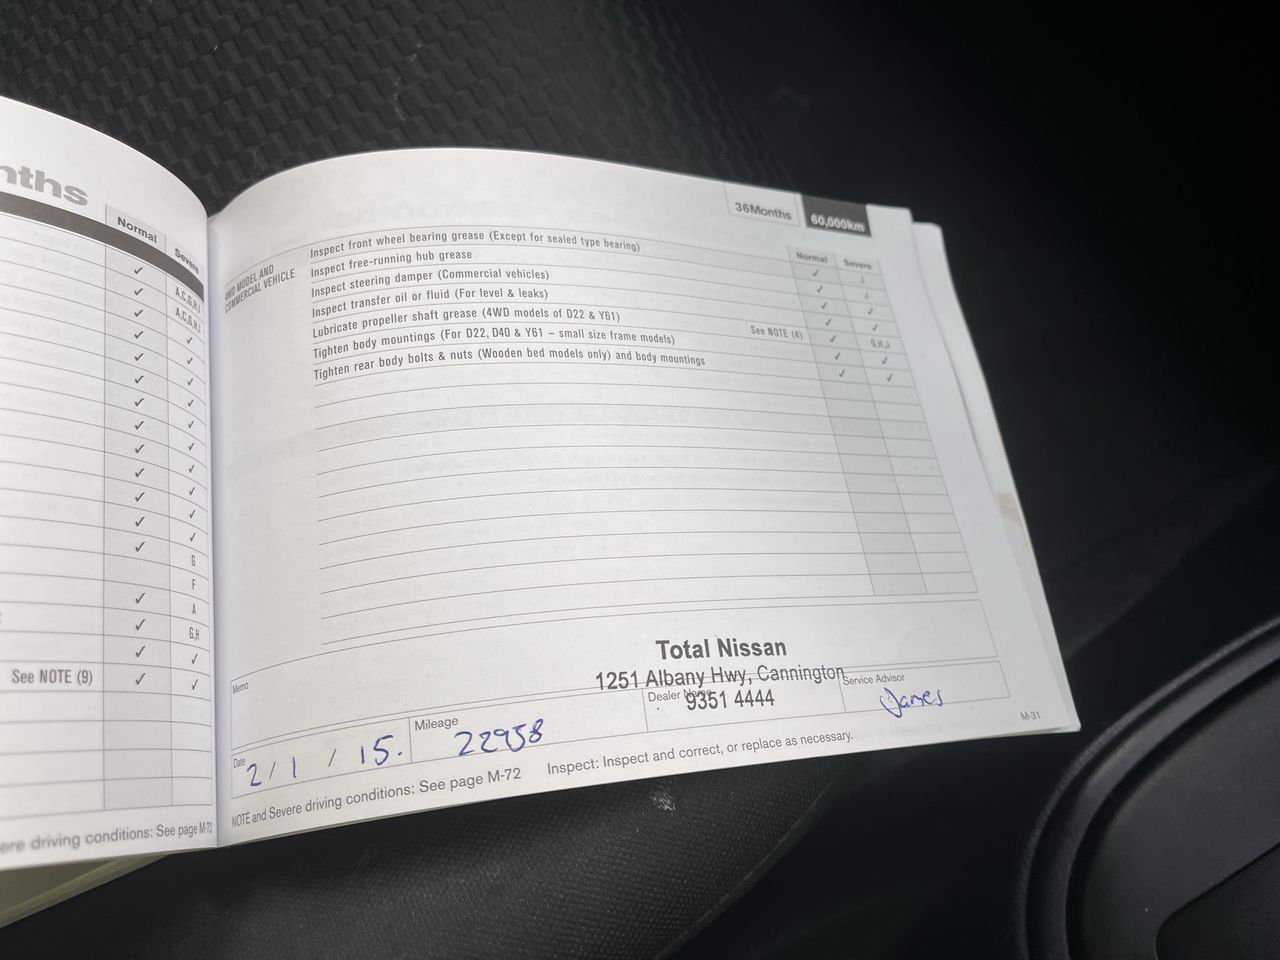 nths
Normal
Severe
✓
✓ A,C,G,H,J
✓ A,C,G,H,J
✓ ✓
✓ ✓
✓ ✓
✓ ✓
✓ ✓
✓ ✓
✓ ✓
✓ ✓
✓ ✓
✓ ✓
G
✓ F
✓ A
✓ G,H
See NOTE (9) ✓ ✓
✓
ere driving conditions: See page M-72
36Months 60,000km
Normal Severe
4WD MODEL AND
COMMERCIAL VEHICLE
Inspect front wheel bearing grease (Except for sealed type bearing) ✓ J
Inspect free-running hub grease ✓ J
Inspect steering damper (Commercial vehicles) ✓ ✓
Inspect transfer oil or fluid (For level & leaks) ✓ ✓
Lubricate propeller shaft grease (4WD models of D22 & Y61) See NOTE (4) ✓ G,H,J
Tighten body mountings (For D22, D40 & Y61 – small size frame models) ✓ ✓
Tighten rear body bolts & nuts (Wooden bed models only) and body mountings ✓ ✓
Memo
Total Nissan
1251 Albany Hwy, Cannington
9351 4444
Date 2/1/15.
Mileage 22958
Dealer Name
Service Advisor James
NOTE and Severe driving conditions: See page M-72 Inspect: Inspect and correct, or replace as necessary.
M-31